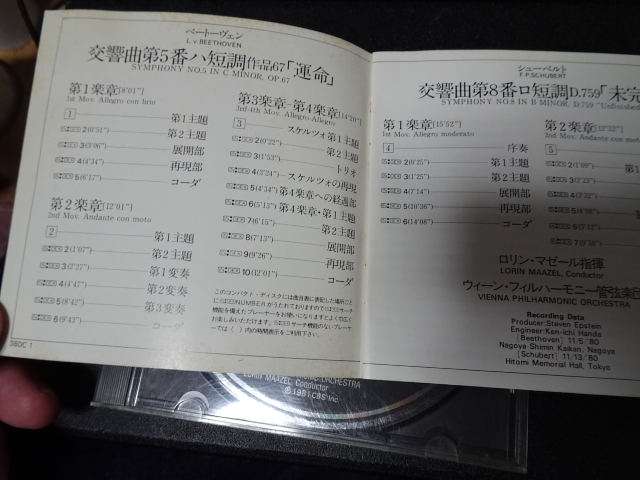 ベートーヴェン
L.v.BEETHOVEN
交響曲第5番ハ短調作品67「運命」
SYMPHONY NO.5 IN C MINOR, OP.67
第1楽章[8'01"]
1st Mov. Allegro con brio
1 第1主題
2(0'51") 第2主題
3(3'06") 展開部
4(4'34") 再現部
5(6'17") コーダ
第2楽章[12'01"]
2nd Mov. Andante con moto
2 第1主題
2(1'07") 第2主題
3(2'27") 第1変奏
4(4'47") 第2変奏
5(8'42") 第3変奏
6(9'43") コーダ
38DC 1
第3楽章-第4楽章[14'26"]
3rd-4th Mov. Allegro-Allegro
3 スケルツォ第1主題
2(0'22") 第2主題
3(1'53") トリオ
4(3'24") スケルツォの再現
5(4'34") 第4楽章への経過部
6(5'13") 第4楽章・第1主題
7(6'15") 第2主題
8(7'13") 展開部
9(9'26") 再現部
10(12'01") コーダ
このコンパクト・ディスクには曲目表に表記した場所ごと
にNUMBERがうたれておりますのでサーチ
機能を備えたプレーヤーをお使いになりますとよりて広く
お楽しみいただけます。サーチ機能のないプレーヤ
ーでは( )内の時間表示をご利用下さい。
シューベルト
F.P.SCHUBERT
交響曲第8番ロ短調D.759「未完
SYMPHONY NO.8 IN B MINOR, D.759 "Unfinished
第1楽章[15'52"]
1st Mov. Allegro moderato
4 序奏
2(0'25") 第1主題
3(1'25") 第2主題
4(7'14") 展開部
5(10'36") 再現部
6(14'08") コーダ
第2楽章[12'32"]
2nd Mov. Andante con moto
5
2(1'09") 第1
3(2'23")
ロリン・マゼール指揮
LORIN MAAZEL, Conductor
ウィーン・フィルハーモニー管弦楽団
VIENNA PHILHARMONIC ORCHESTRA
Recording Data
Producer: Steven Epstein
Engineer: Ken-ichi Handa
[Beethoven] 11.5.'80
Nagoya Shimin Kaikan, Nagoya
[Schubert] 11.13.'80
Hitomi Memorial Hall, Tokyo
ORCHESTRA
LORIN MAAZEL, Conductor
℗1981 CBS Inc.